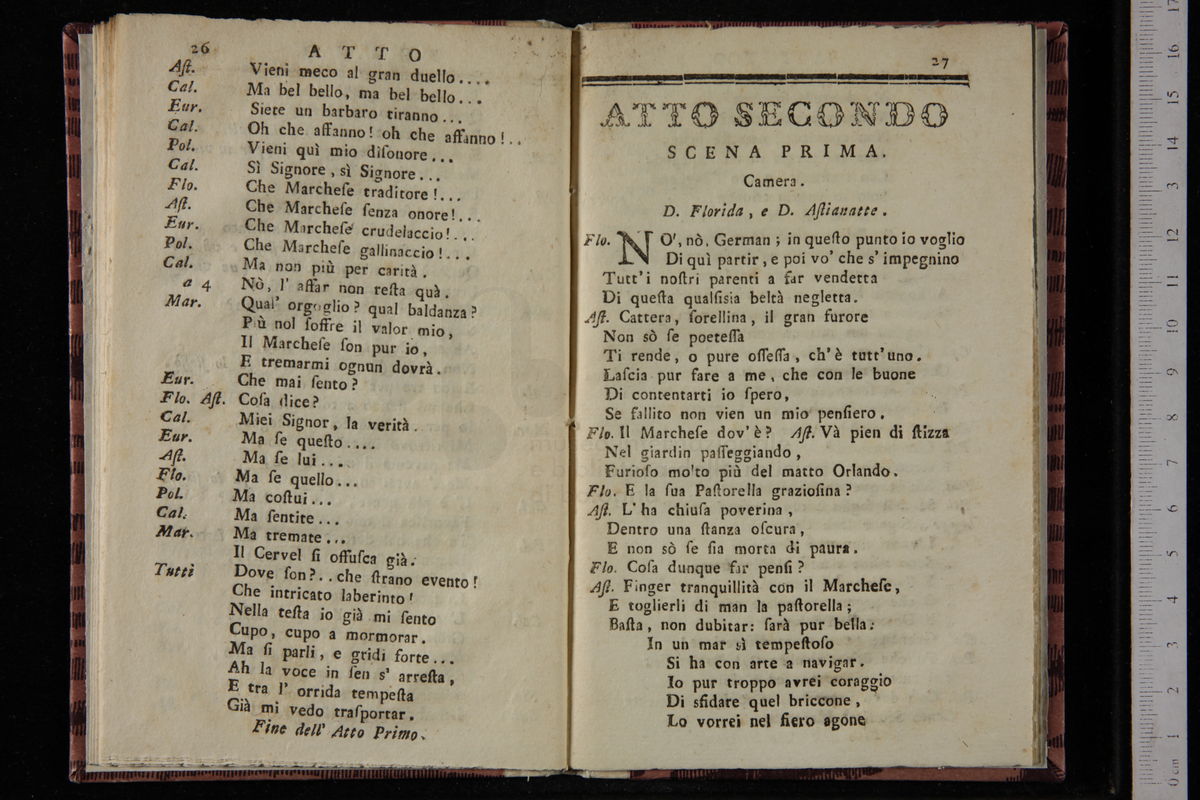 26 A T T O
Aſt. Vieni meco al gran duello....
Cal. Ma bel bello, ma bel bello...
Eur. Siete un barbaro tiranno...
Cal. Oh che affanno! oh che affanno!..
Pol. Vieni quì mio diſonore...
Cal. Sì Signore, sì Signore...
Flo. Che Marcheſe traditore!...
Aſt. Che Marcheſe ſenza onore!...
Eur. Che Marcheſe crudelaccio!...
Pol. Che Marcheſe gallinaccio!...
Cal. Ma non più per carità.
a 4 Nò, l' affar non reſta quà.
Mar. Qual' orgoglio? qual baldanza?
Più nol ſoffre il valor mio,
Il Marcheſe ſon pur io,
E tremarmi ognun dovrà.
Eur. Che mai ſento?
Flo. Aſt. Coſa dice?
Cal. Miei Signor, la verità.
Eur. Ma ſe queſto....
Aſt. Ma ſe lui...
Flo. Ma ſe quello...
Pol. Ma coſtui...
Cal. Ma ſentite...
Mar. Ma tremate...
Il Cervel ſi offuſca già.
Tutti Dove ſon?..che ſtrano evento!
Che intricato laberinto!
Nella teſta io già mi ſento
Cupo, cupo a mormorar.
Ma ſi parli, e gridi forte...
Ah la voce in ſen s' arreſta,
E tra l' orrida tempeſta
Già mi vedo traſportar.
Fine dell' Atto Primo.
27
ATTO SECONDO
SCENA PRIMA.
Camera.
D. Florida, e D. Aſtianatte.
Flo. NO', nò, German; in queſto punto io voglio
Di quì partir, e poi vo' che s' impegnino
Tutt'i noſtri parenti a far vendetta
Di queſta qualſisia beltà negletta.
Aſt. Cattera, ſorellina, il gran furore
Non sò ſe poeteſſa
Ti rende, o pure oſſeſſa, ch'è tutt'uno.
Laſcia pur fare a me, che con le buone
Di contentarti io ſpero,
Se fallito non vien un mio penſiero.
Flo. Il Marcheſe dov'è? Aſt. Và pien di ſtizza
Nel giardin paſſeggiando,
Furioſo mo'to più del matto Orlando.
Flo. E la ſua Paſtorella grazioſina?
Aſt. L' ha chiuſa poverina,
Dentro una ſtanza oſcura,
E non sò ſe ſia morta di paura.
Flo. Coſa dunque far penſi?
Aſt. Finger tranquillità con il Marcheſe,
E toglierli di man la paſtorella;
Baſta, non dubitar: ſarà pur bella:
In un mar sì tempeſtoſo
Si ha con arte a navigar.
Io pur troppo avrei coraggio
Di sfidare quel briccone,
Lo vorrei nel fiero agone
17
16
15
14
13
12
11
10
9
8
7
6
5
4
3
2
1
0 cm